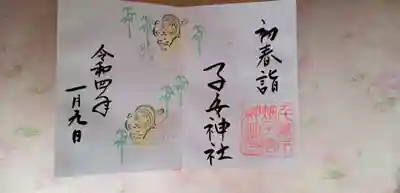 初春詣
子安神社
令和四年
一月九日